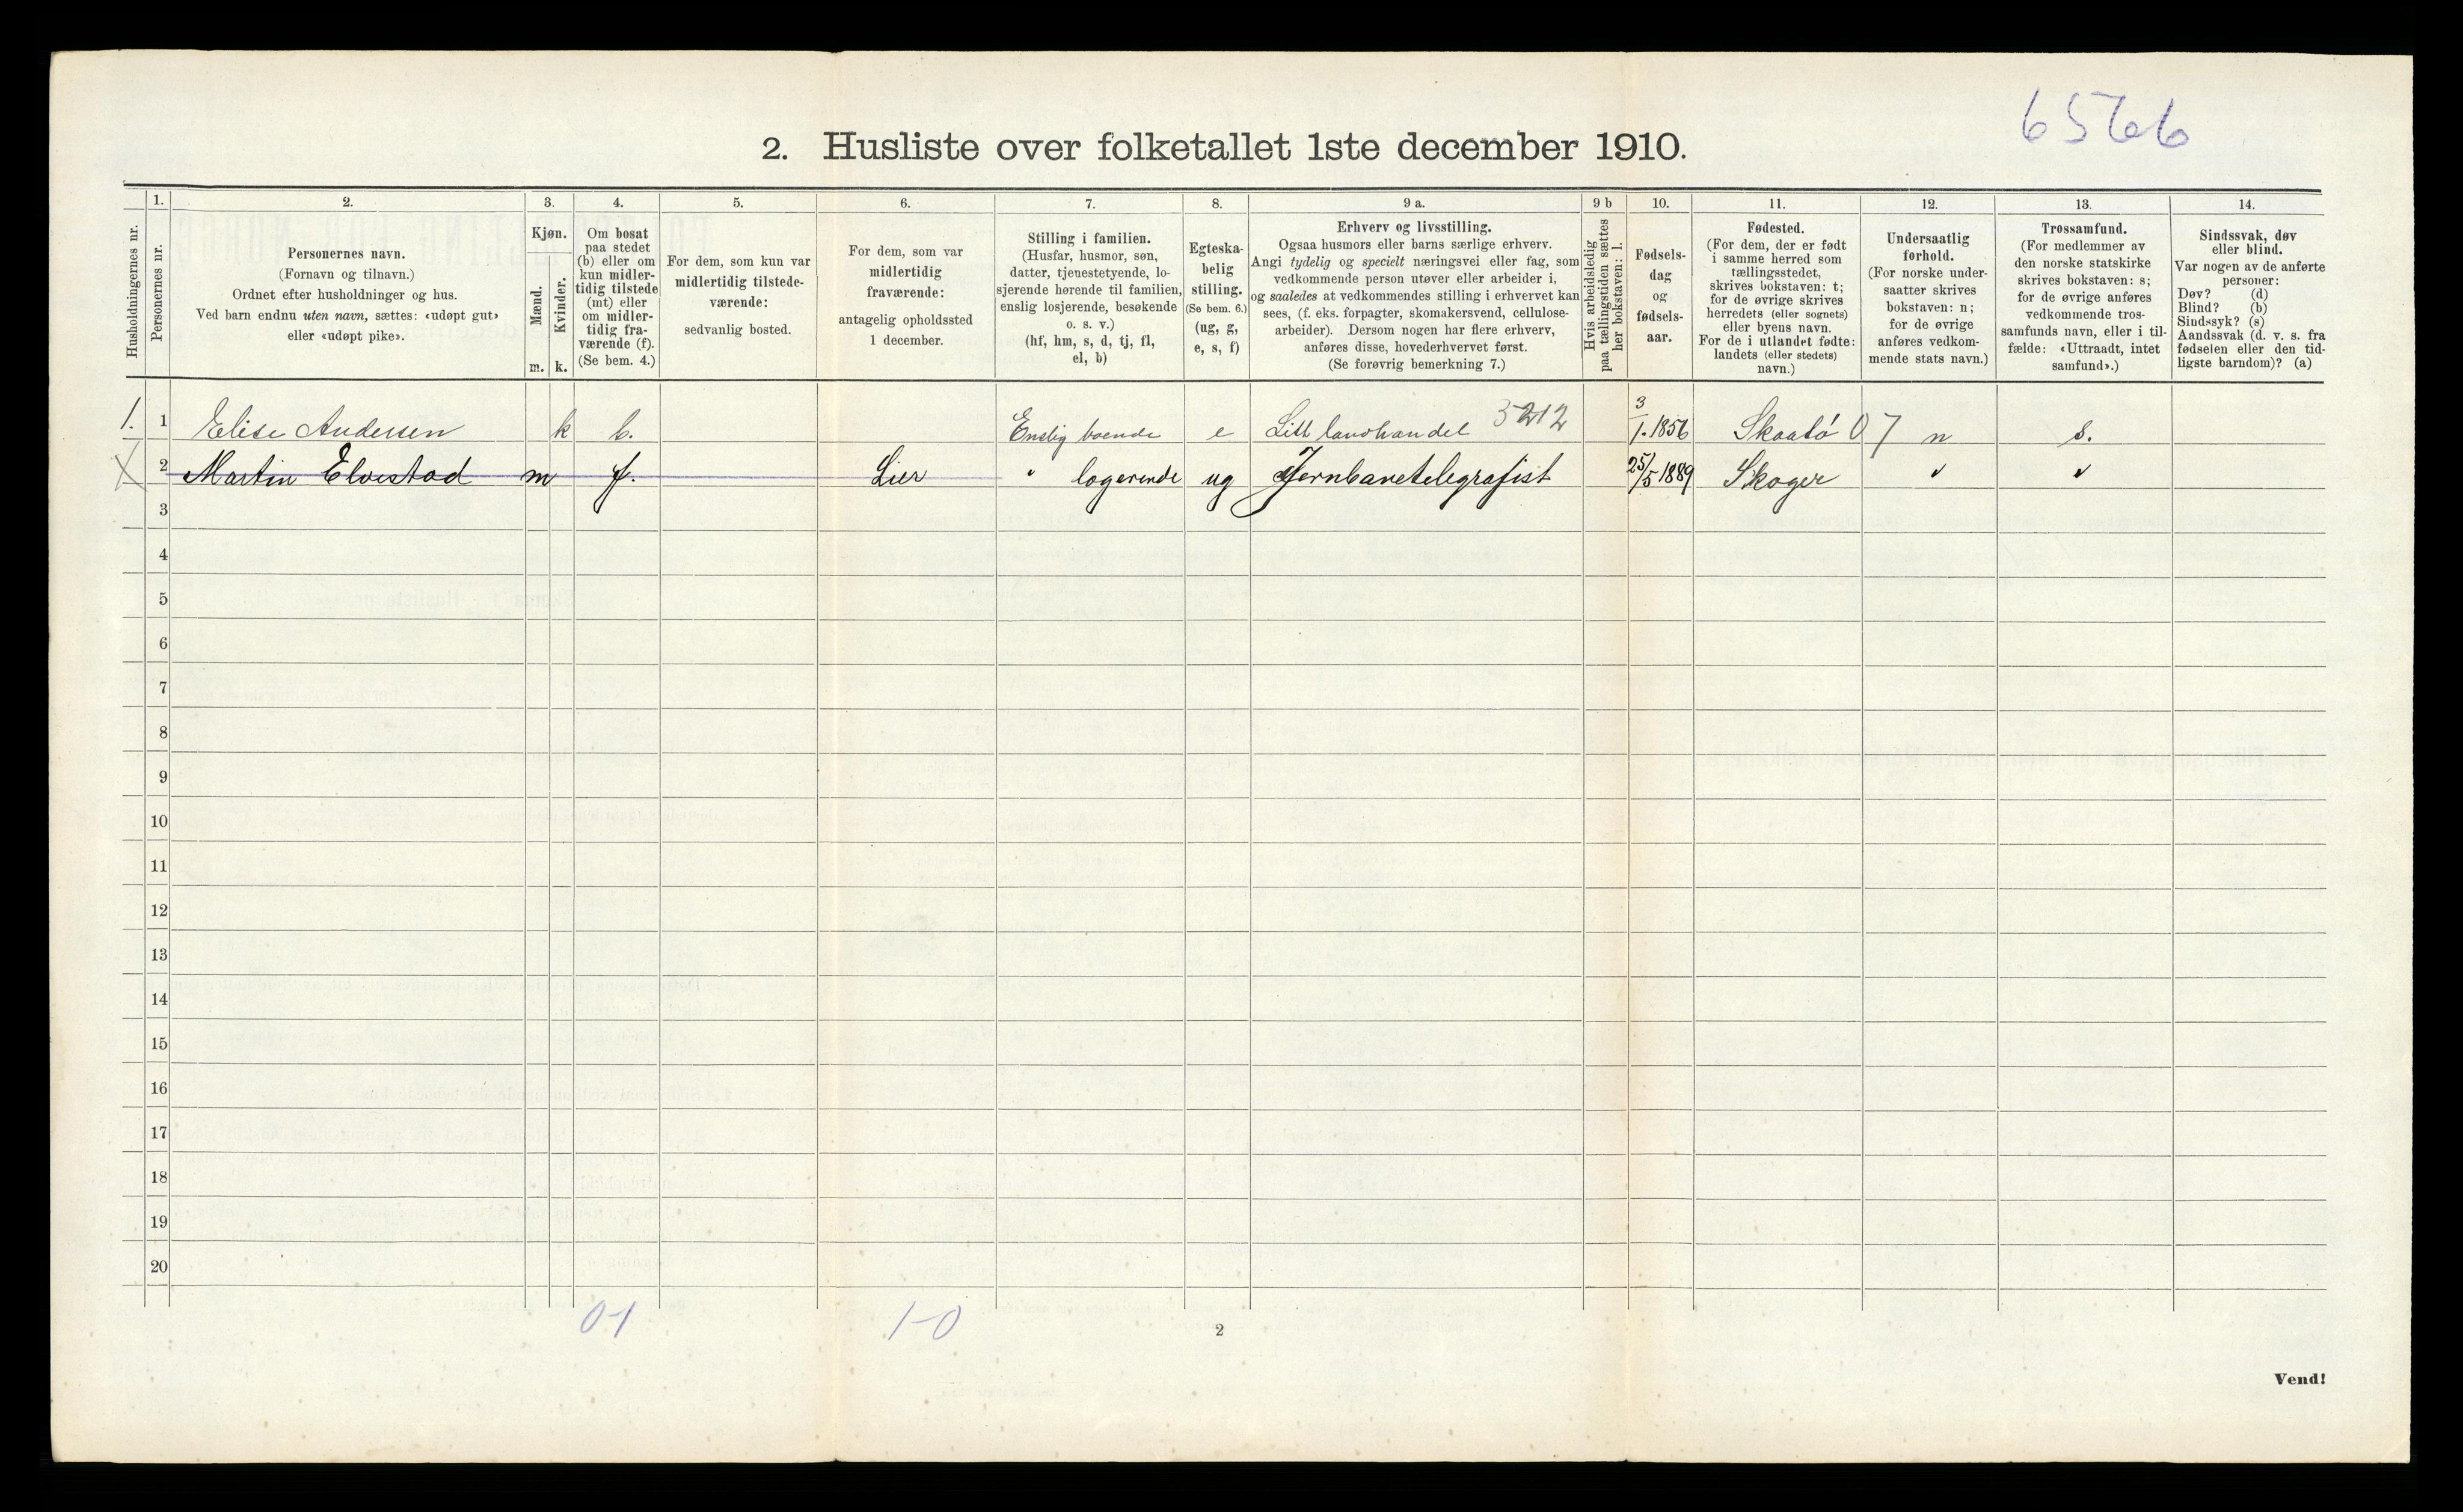 6566
2. Husliste over folketallet 1ste december 1910.
Husholdningernes nr.
1.
Personernes nr.
2.
Personernes navn.
(Fornavn og tilnavn.)
Ordnet efter husholdninger og hus.
Ved barn endnu uten navn, sættes: «udøpt gut»
eller «udøpt pike».
3.
Kjøn.
Mænd.
Kvinder.
m. k.
4.
Om bosat
paa stedet
(b) eller om
kun midler-
tidig tilstede
(mt) eller
om midler-
tidig fra-
værende (f).
(Se bem. 4.)
5.
For dem, som kun var
midlertidig tilstede-
værende:
sedvanlig bosted.
6.
For dem, som var
midlertidig
fraværende:
antagelig opholdssted
1 december.
7.
Stilling i familien.
(Husfar, husmor, søn,
datter, tjenestetyende, lo-
sjerende hørende til familien,
enslig losjerende, besøkende
o. s. v.)
(hf, hm, s, d, tj, fl,
el, b)
8.
Egteska-
belig
stilling.
(Se bem. 6.)
(ug, g,
e, s, f)
9 a.
Erhverv og livsstilling.
Ogsaa husmors eller barns særlige erhverv.
Angi tydelig og specielt næringsvei eller fag, som
vedkommende person utøver eller arbeider i,
og saaledes at vedkommendes stilling i erhvervet kan
sees, (f. eks. forpagter, skomakersvend, cellulose-
arbeider). Dersom nogen har flere erhverv,
anføres disse, hovederhvervet først.
(Se forøvrig bemerkning 7.)
9 b
Hvis arbeidsledig
paa tællingstiden sættes
her bokstaven: l.
10.
Fødsels-
dag
og
fødsels-
aar.
11.
Fødested.
(For dem, der er født
i samme herred som
tællingsstedet,
skrives bokstaven: t;
for de øvrige skrives
herredets (eller sognets)
eller byens navn.
For de i utlandet fødte:
landets (eller stedets)
navn.)
12.
Undersaatlig
forhold.
(For norske under-
saatter skrives
bokstaven: n;
for de øvrige
anføres vedkom-
mende stats navn.)
13.
Trossamfund.
(For medlemmer av
den norske statskirke
skrives bokstaven: s;
for de øvrige anføres
vedkommende tros-
samfunds navn, eller i til-
fælde: «Uttraadt, intet
samfund».)
14.
Sindssvak, døv
eller blind.
Var nogen av de anførte
personer:
Døv? (d)
Blind? (b)
Sindssyk? (s)
Aandssvak (d. v. s. fra
fødselen eller den tid-
ligste barndom)? (a)
1. 1 Elise Andersen k b. Enslig boende e Litt landhandel 5212 3/1. 1856 Skaatö 07 n s.
X 2 Martin Elvestad m f. Lier " logerende ug Jernbanetelegrafist 25/5 1889 Skoger " "
3
4
5
6
7
8
9
10
11
12
13
14
15
16
17
18
19
20
0-1 1-0
2
Vend!